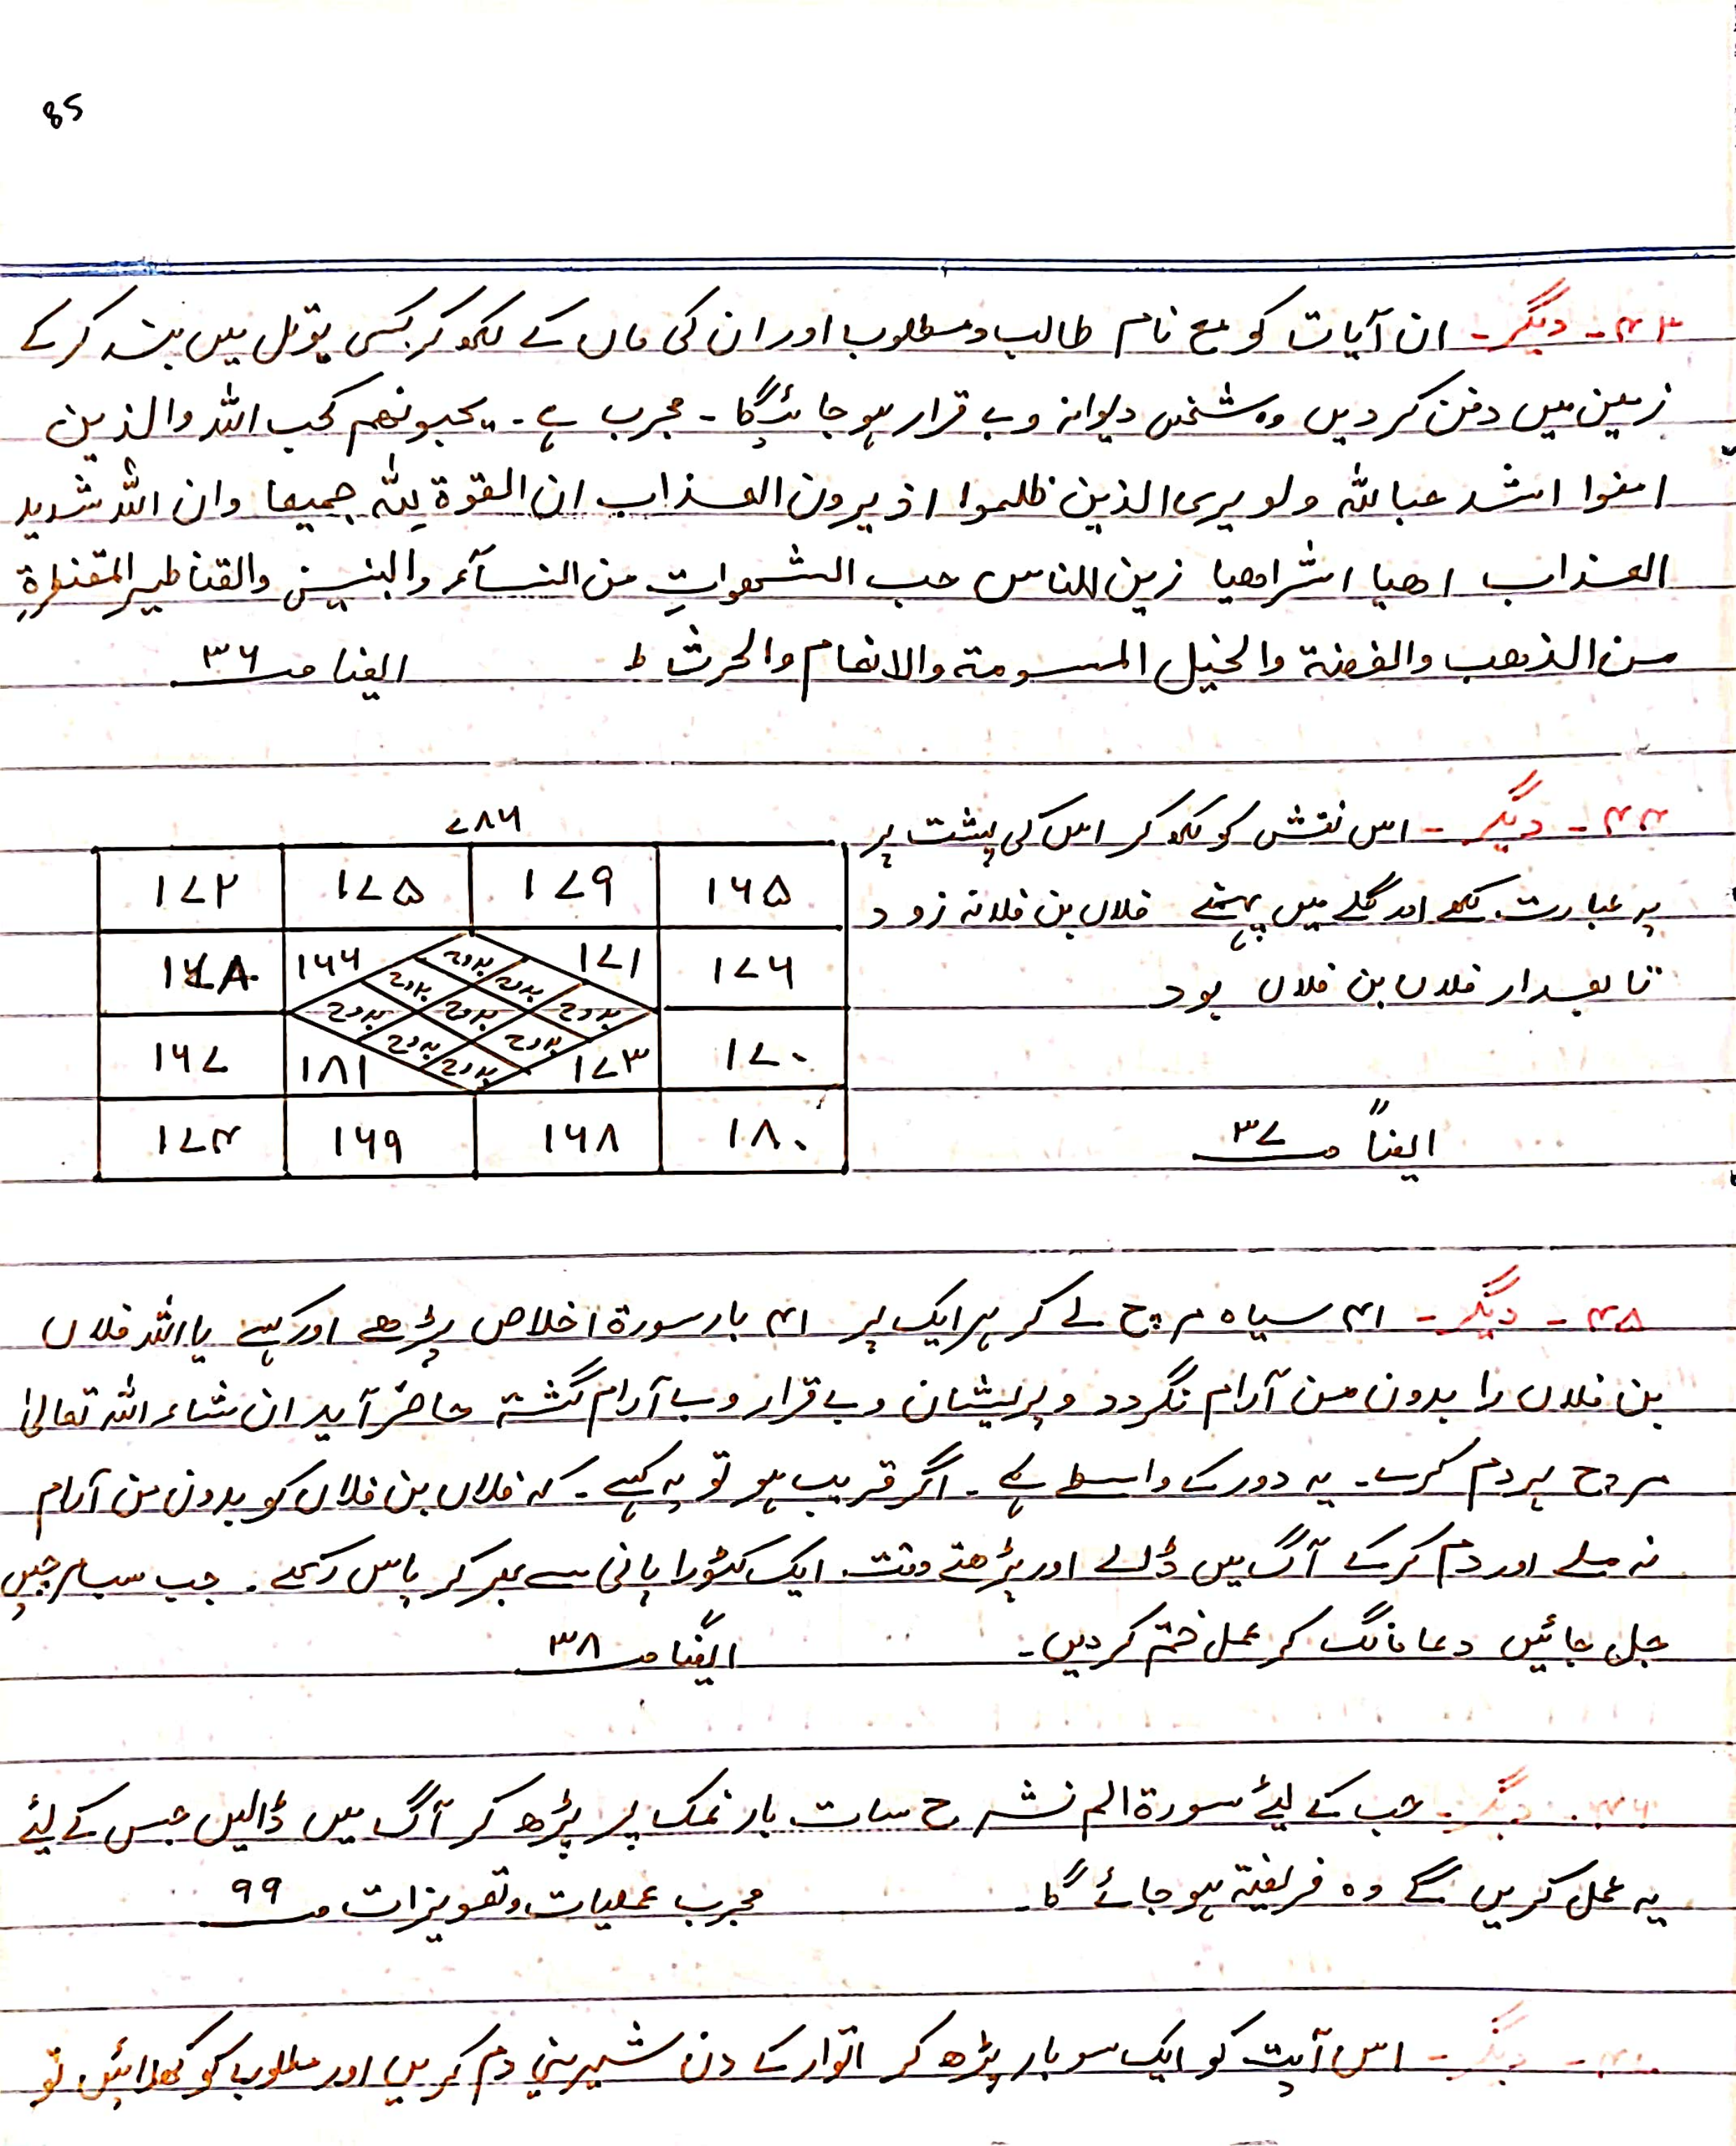 85
۴۳۔ دیگر۔ ان آیات کو مع نام طالب و مطلوب اور ان کی ماں کے لکھ کر کسی بوتل میں بند کر کے
زمین میں دفن کر دیں وہ شخص دیوانہ و بے قرار ہو جائے گا۔ مجرب ہے۔ یحبونھم کحب اللہ والذین
امنوا اشد حباللہ ولو یری الذین ظلموا اذ یرون العذاب ان القوۃ للہ جمیعا وان اللہ شدید
العذاب اھیا اشراھیا زین للناس حب الشھواتِ من النسآء والبنین والقناطیر المقنطرۃِ
من الذھب والفضۃ والخیل المسومۃ والانعام والحرث ط ایضا صـ ۳۶
۴۴۔ دیگر۔ اس نقش کو لکھ کر اس کی پشت پر
یہ عبارت لکھے اور گلے میں پہنے فلاں بن فلانہ زود
تابعدار فلاں بن فلاں بود
ایضاً صـ ۳۷
۷۸۶
۱۶۵ ۱۷۹ ۱۷۵ ۱۷۲
۱۷۶ ۱۷۱ بدوح بدوح بدوح ۱۶۶ ۱۷۸
بدوح بدوح بدوح
۱۷۰ ۱۷۳ بدوح بدوح بدوح ۱۸۱ ۱۶۷
۱۸۰ ۱۶۸ ۱۶۹ ۱۷۴
۴۵۔ دیگر۔ ۴۱ سیاہ مرچ لے کر ہر ایک پر ۴۱ بار سورۃ اخلاص پڑھے اور کہے یا اللہ فلاں
بن فلاں را بدون من آرام نگردد و پریشان و بے قرار و بے آرام گشتہ حاضر آید ان شاء اللہ تعالیٰ
مرچ پر دم کرے۔ یہ دور کے واسطے ہے۔ اگر قریب ہو تو یہ کہے۔ کہ فلاں بن فلاں کو بدون من آرام
نہ ملے اور دم کر کے آگ میں ڈالے اور پڑھتے وقت ایک کٹورا پانی سے بھر کر پاس رکھے۔ جب سب مرچیں
جل جائیں دعا مانگ کر عمل ختم کر دیں۔ ایضاً صـ ۳۸
۴۶۔ دیگر۔ حب کے لیئے سورۃ الم نشرح سات بار نمک پر پڑھ کر آگ میں ڈالیں جس کے لیئے
یہ عمل کریں گے وہ فریفتہ ہو جائے گا۔ مجرب عملیات و تعویزات صـ ۹۹
دیگر۔ اس آیت کو ایک سو بار پڑھ کر اتوار کے دن شیرینی دم کریں اور مطلوب کو کھلائیں تو